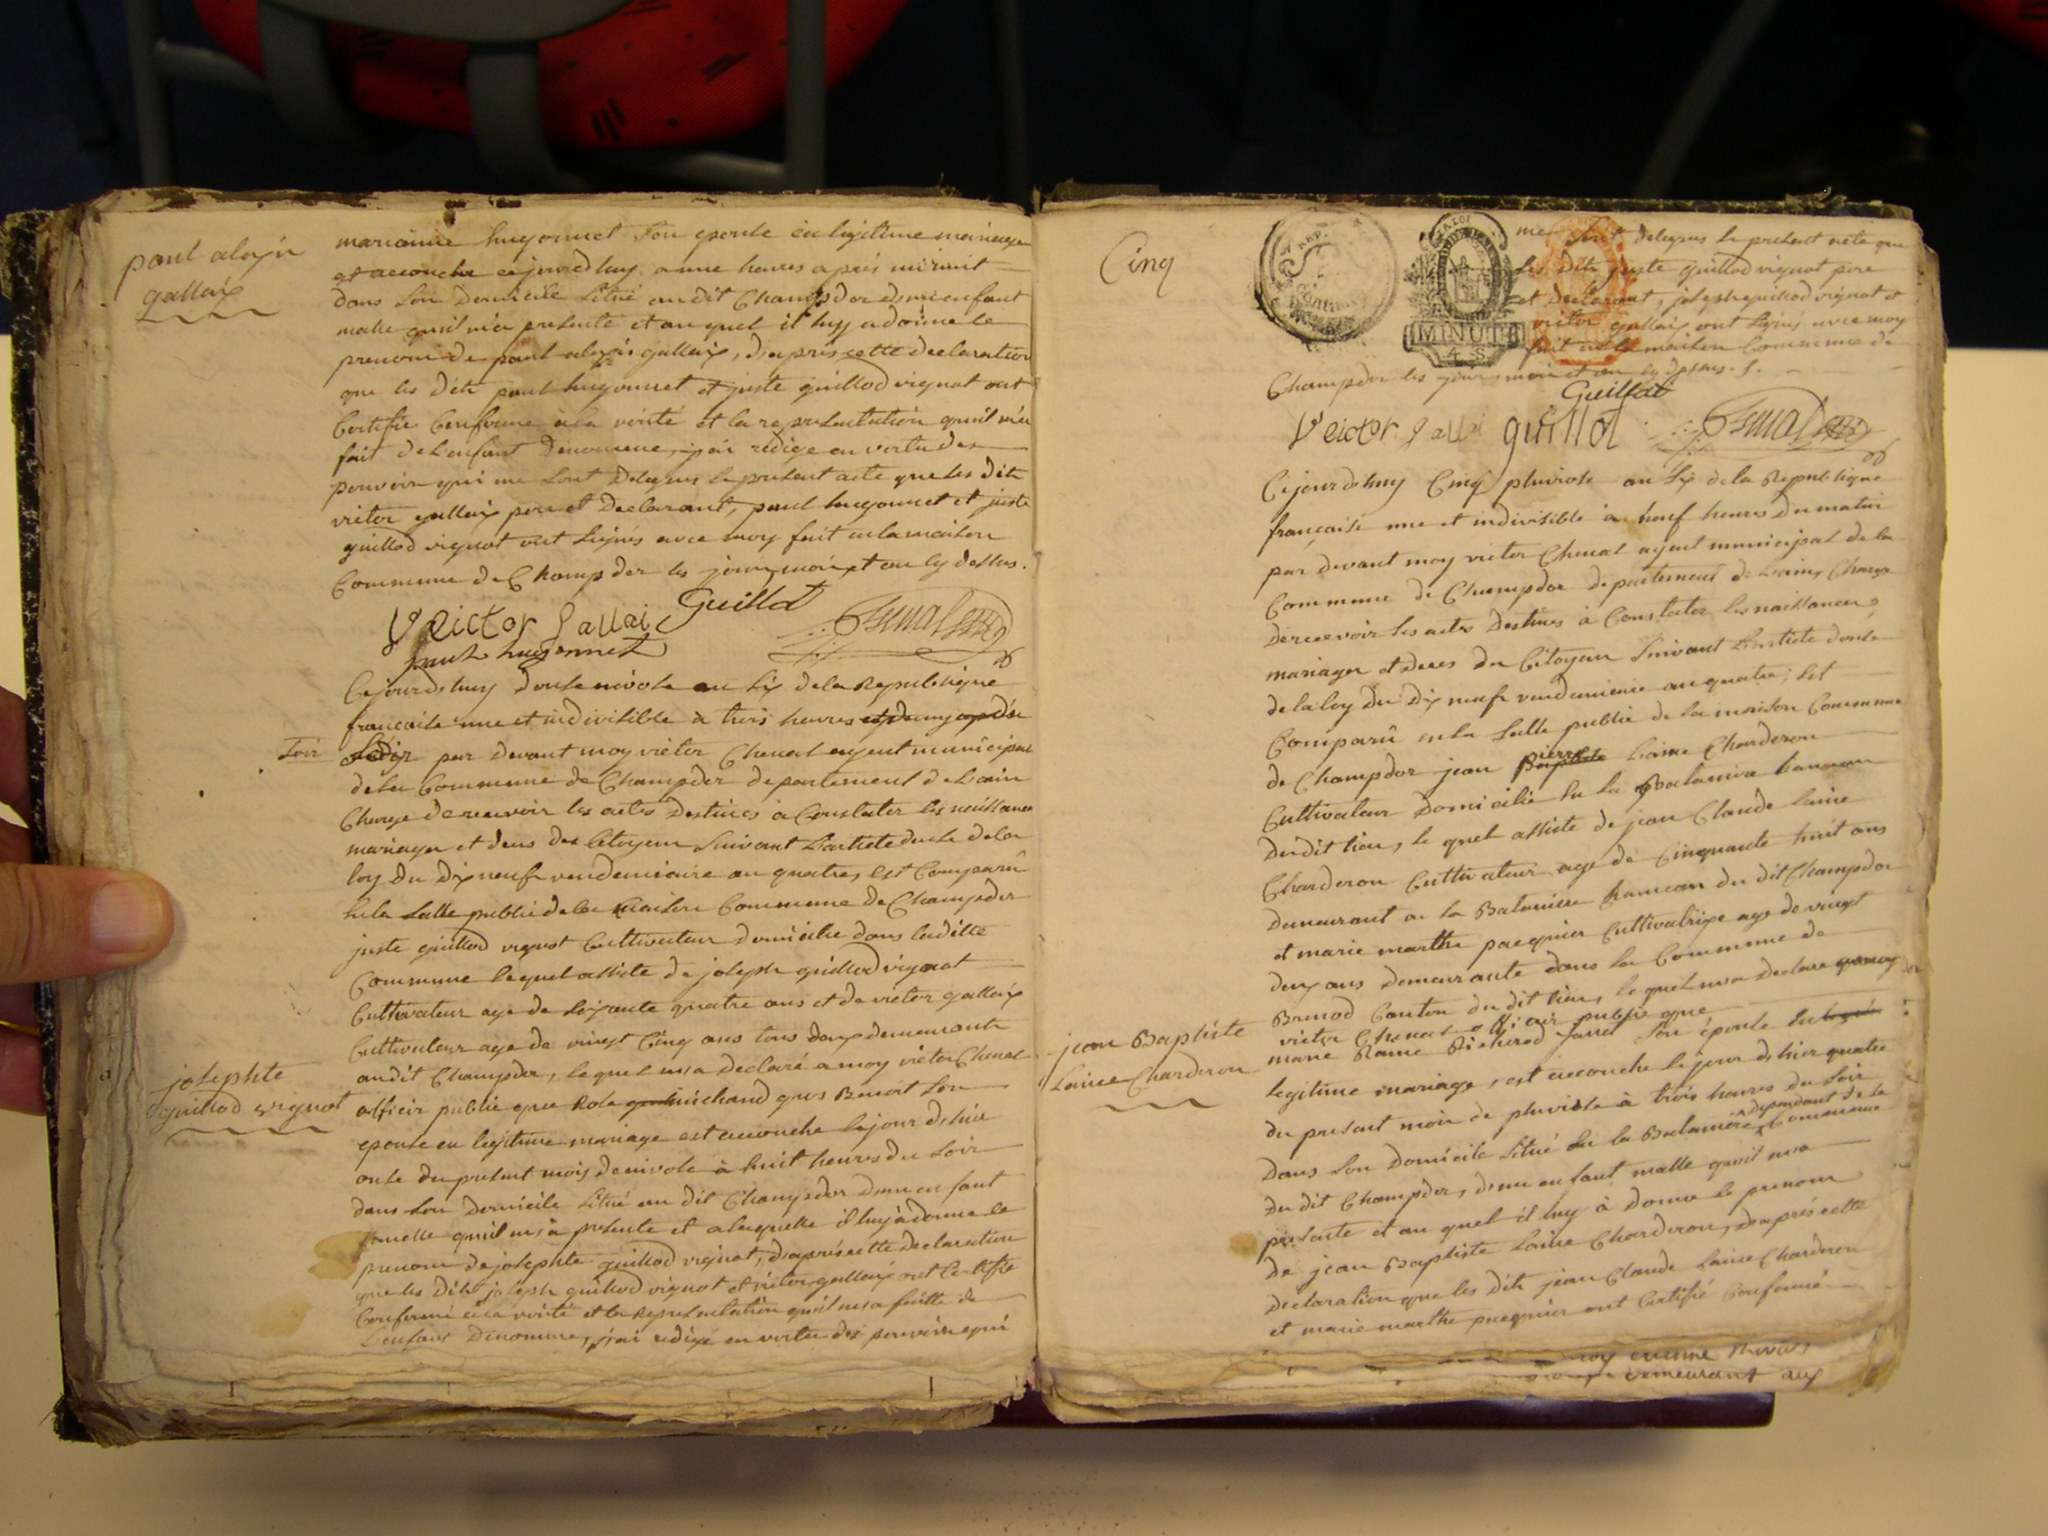 paul alexis
gallaix
marianne hugonnet son epouse en legitime mariage
est accouche ce jourdhuy a une heures après minuit
dans son Domicile situé au dit Champdor dun enfant
malle quoil m'a presenté et au quel il luy a donne le
prenom de paul alexis gallaix, d'après cette declaration
que les dits paul hugonnet et juste guillod vignat ont
Certifie Conforme à la vérité et la representation quoil m'a
fait de l'enfant denomme, j'ai rédigé en vertu des
pouvoirs qui me sont delegués le present acte que les dits
victor gallaix pere et Declarant, paul hugonnet et juste
guillod vignat ont signés avec moy fait en la maison
Commune de Champdor les jour, mois et an cy dessus.
Veictor Gallai Guillot Chenal
paul hugonnet
Cejourdhuy douse nivose an six de la Republique
française une et indivisible à trois heures et demy après
soir par devant moy victor Chenal agent municipal
de la Commune de Champdor departement de L'ain
Chargé de recevoir les actes destinés à Constater les naissances
mariages et deces des Citoyens suivant L'article douse de la
loy du dix neuf vendemiaire an quatre, est Comparû
en la salle public de la maison Commune de Champdor
juste guillod vignat Cultivateur domicilie dans laditte
Commune lequel assiste de joseph guillod vignat
Cultivateur age de soixante quatre ans et de victor gallaix
Cultivateur age de vingt Cinq ans tous deux demeurants
au dit Champdor, lequel m'a declaré a moy victor Chenal
josephte
guillod vignat
officier public que Rose michaud gros Benoit son
epouse en legitime mariage est accouche le jour d'hier
onse du present mois de nivose à huit heures du soir
dans son Domicile situé au dit Champdor d'une enfant
femelle quoil m'a presenté et a laquelle il luy à donne le
prenom de josephte guillod vignat, d'après cette declaration
que les dits joseph guillod vignat et victor gallaix ont Certifie
Conforme à la vérité et la representation quoil m'a faitte de
L'enfant denomme, j'ai rédigé en vertu des pouvoirs qui
Cinq
MINUT
4 S
me sont delegués le present acte que
les dits juste guillod vignat pere
et declarant, joseph guillod vignat et
victor gallaix ont signés avec moy
fait en la maison Commune de
Champdor les jour, mois et an cy dessus.
Guillot
Veictor Gallai guillot Chenal
Cejourdhuy Cinq pluviose an six de la Republique
française une et indivisible à neuf heures du matin
par devant moy victor Chenal agent municipal de la
Commune de Champdor departement de L'ain, Chargé
de recevoir les actes destinés à Constater les naissances,
mariages et deces des Citoyens suivant L'article douse
de la loy du dix neuf vendemiaire an quatre, est
Comparû en la salle public de la maison Commune
de Champdor jean pierre Baptiste Laine Charderon
Cultivateur Domicilié à la Balamire hameau
du dit lieu, lequel assiste de jean Claude Laine
Charderon Cultivateur age de Cinquante huit ans
demeurant a la Balamire hameau du dit Champdor
et marie marthe pacquier Cultivatrixe age de vingt
deux ans demeurante dans la Commune de
Brenod Canton du dit lieu, lequel m'a declare a moy
victor Chenal officier public que
jean Baptiste
Laine Charderon
marie Richerod Jarret son épouse en
legitime mariage, est accouche le jour d'hier quatre
du present mois de pluviose à trois heures du soir
dans son Domicile situé à la Balamire dependant de la Commune
du dit Champdor, d'une enfant malle quoil m'a
presenté et au quel il luy à donne le prenom
de jean Baptiste Laine Charderon, d'après cette
declaration que les dits jean Claude Laine Charderon
et marie marthe pacquier ont Certifié Conforme
demeurant aux